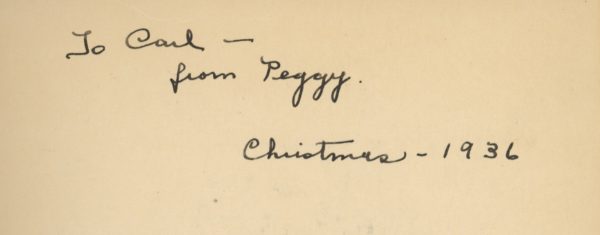 To Carl —
from Peggy.
Christmas - 1936